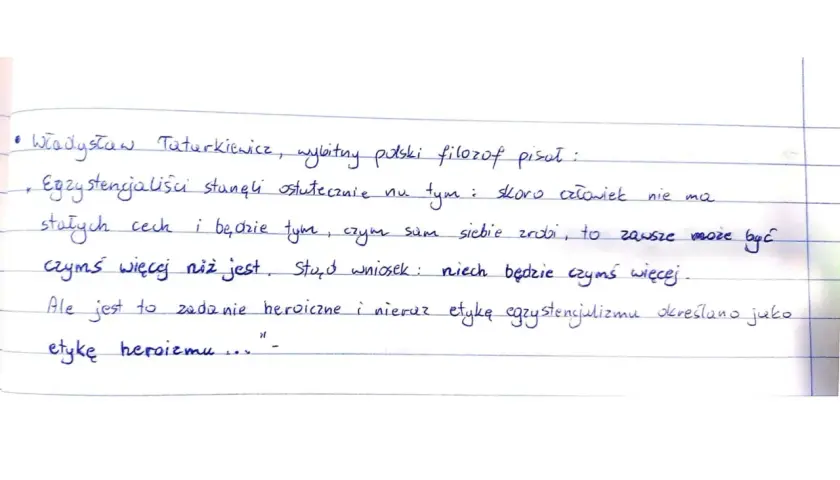 • Władysław Tatarkiewicz, wybitny polski filozof pisał:
„Egzystencjaliści stanęli ostatecznie na tym: skoro człowiek nie ma
stałych cech i będzie tym, czym sam siebie zrobi, to zawsze może być
czymś więcej niż jest. Stąd wniosek: niech będzie czymś więcej.
Ale jest to zadanie heroiczne i nieraz etykę egzystencjalizmu określano jako
etykę heroizmu..." -